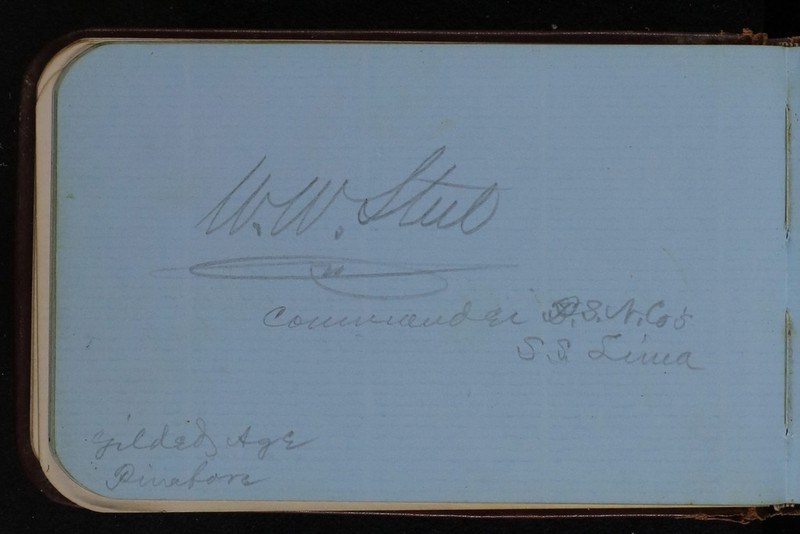 W. W. Steel
Commander P.S.N.Co's
S.S Lima
Gilded Age
Pinafore